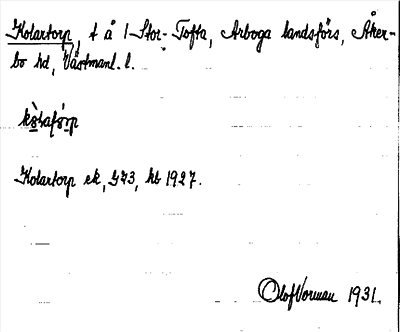 Kolartorp, t å 1 Stor-Tofta, Arboga landsförs, Åker-
bo hd, Västmanl. l.
Kolartorp ek, GEB, hb 1927.
Olof Vorman 1931.